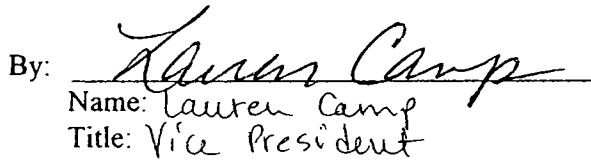 By: Lauren Camp
Name: Lauren Camp
Title: Vice President